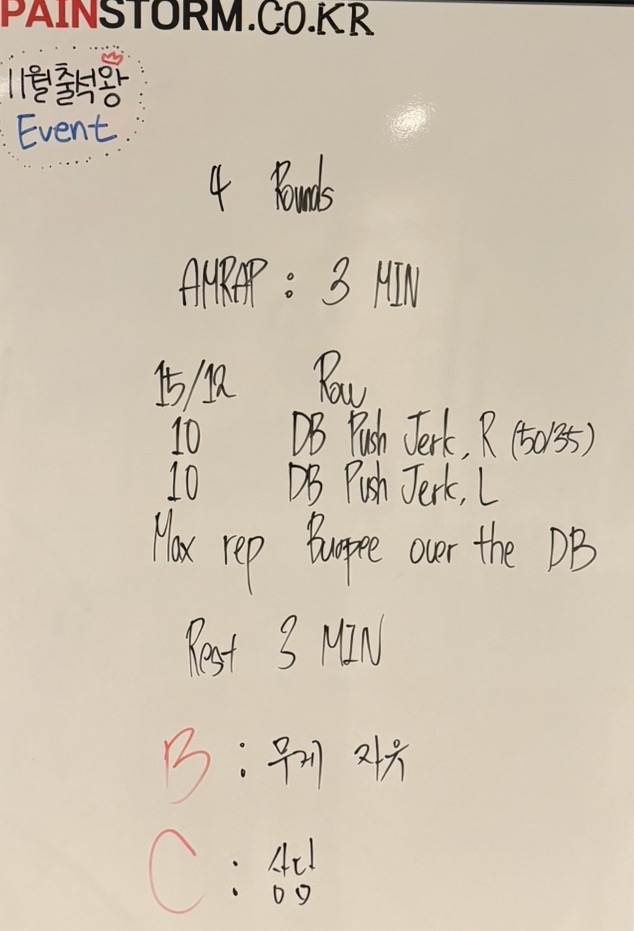 PAINSTORM.CO.KR
11월출석왕
Event
4 Rounds
AMRAP : 3 MIN
15/12 Row
10 DB Push Jerk, R (50/35)
10 DB Push Jerk, L
Max rep Burpee over the DB
Rest 3 MIN
B : 무게 자유
C : 상담